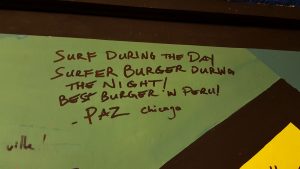 SURF DURING THE DAY
SURFER BURGER DURING
THE NIGHT!
BEST BURGER 'N PERU!
- PAZ Chicago
ville!